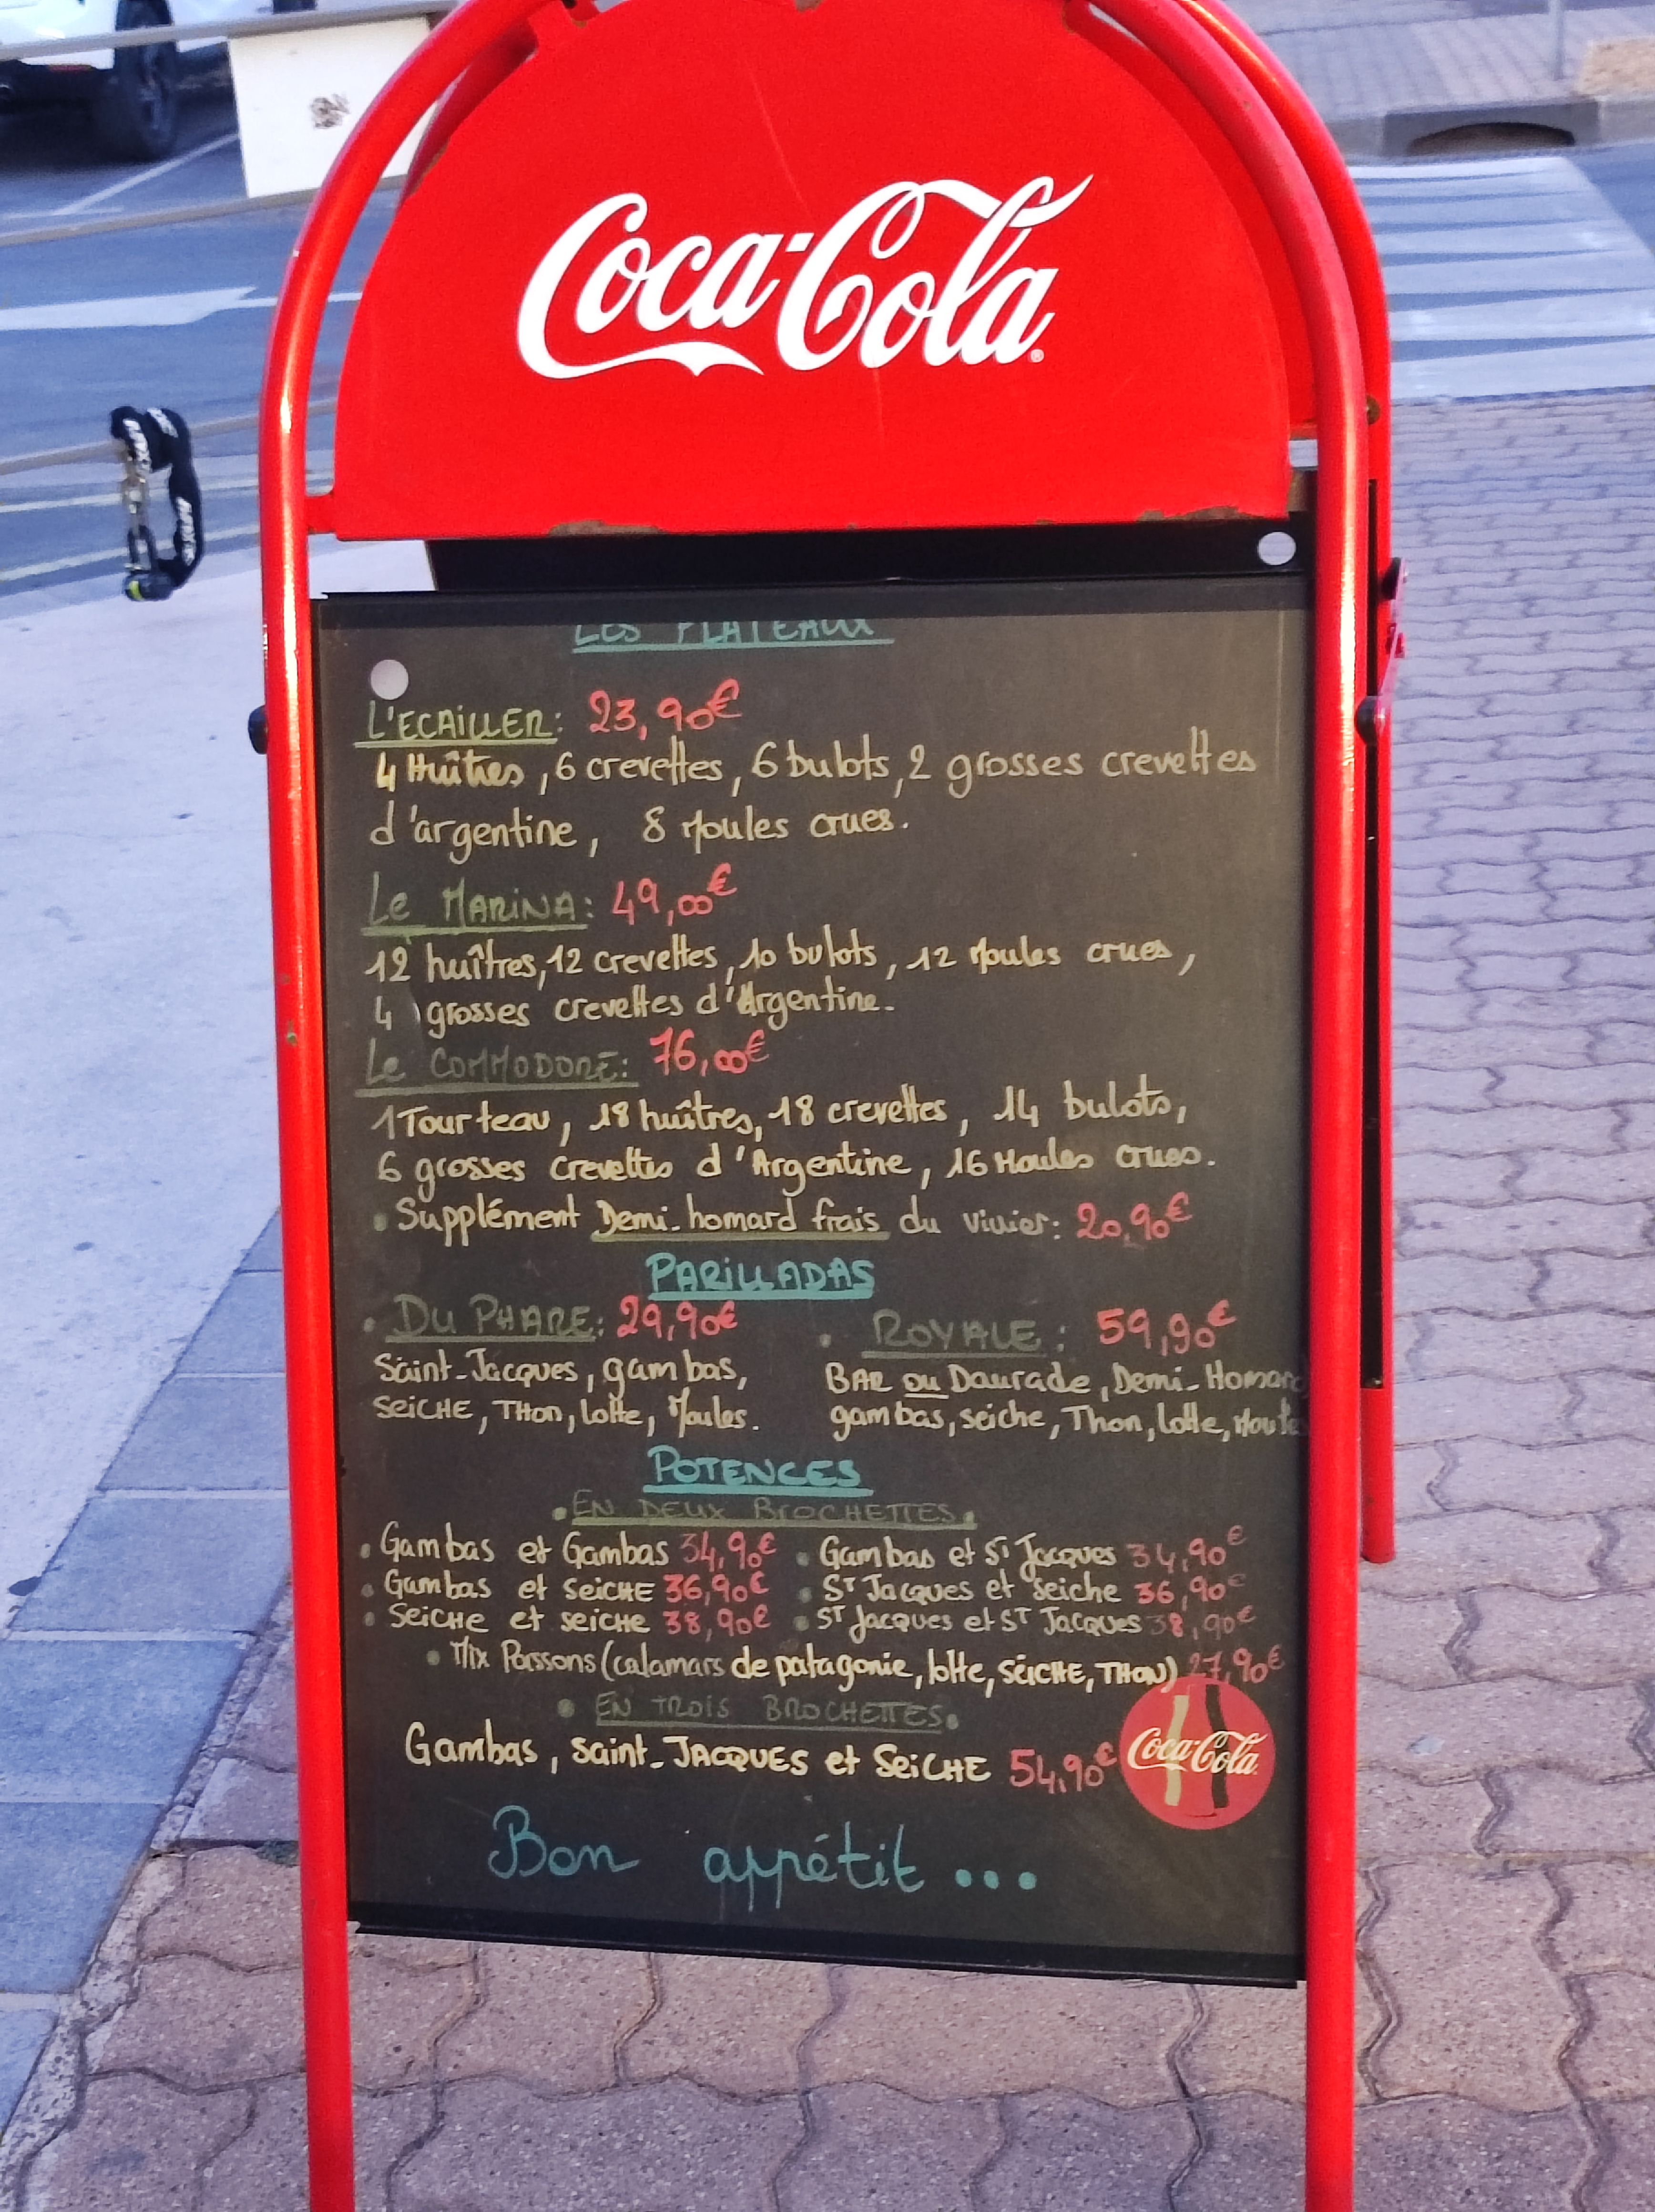 Coca-Cola
LES PLATEAUX
L'ECAILLER: 23,90€
4 Huîtres, 6 crevettes, 6 bulots, 2 grosses crevettes
d'argentine, 8 Moules crues.
Le MARINA: 49,00€
12 huîtres, 12 crevettes, 10 bulots, 12 Moules crues,
4 grosses crevettes d'Argentine.
Le COMMODORE: 76,00€
1 Tourteau, 18 huîtres, 18 crevettes, 14 bulots,
6 grosses crevettes d'Argentine, 16 Moules crues.
• Supplément Demi-homard frais du vivier: 20,90€
PARILLADAS
• DU PHARE: 29,90€
Saint-Jacques, gambas,
SEICHE, THon, lotte, Moules.
• ROYALE: 59,90€
BAR ou Daurade, Demi-Homard
gambas, seiche, Thon, lotte, Moules
POTENCES
• EN DEUX BROCHETTES •
• Gambas et Gambas 34,90€ • Gambas et St Jacques 34,90€
• Gambas et SEICHE 36,90€ • ST Jacques et seiche 36,90€
• Seiche et seiche 38,90€ • ST Jacques et ST Jacques 38,90€
• Mix Poissons (calamars de patagonie, lotte, SEICHE, THON) 27,90€
• EN TROIS BROCHETTES •
Gambas, Saint-JACQUES et SEICHE 54,90€
Coca-Cola
Bon appétit...